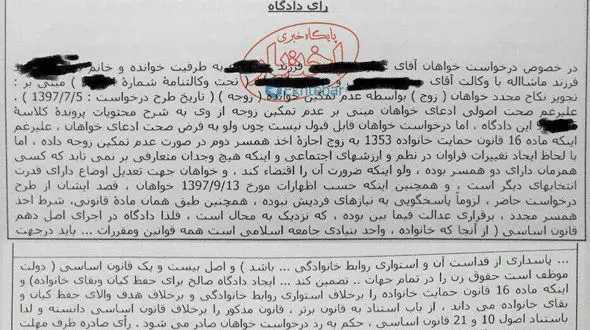 رأی دادگاه
پایگاه خبری
اختبار
Ekhtebar
در خصوص درخواست خواهان آقای فرزند به طرفیت خوانده و خانم
فرزند ماشااله با وکالت آقای ( تحت وکالتنامۀ شمارۀ ) مبنی بر :
تجویز نکاح مجدد خواهان ( زوج ) بواسطه عدم تمکین خوانده ( زوجه ) ( تاریخ طرح درخواست : 1397/7/5) ،
علیرغم صحت اصولی ادعای خواهان مبنی بر عدم تمکین زوجه از وی به شرح محتویات پروندۀ کلاسۀ
این دادگاه ، اما درخواست خواهان قابل قبول نیست چون ولو به فرض صحت ادعای خواهان ، علیرغم
اینکه ماده 16 قانون حمایت خانواده 1353 به زوج اجازۀ اخذ همسر دوم در صورت عدم تمکین زوجه داده ، اما
با لحاظ ایجاد تغییرات فراوان در نظم و ارزشهای اجتماعی و اینکه هیچ وجدان متعارفی بر نمی تابد که کسی
همزمان دارای دو همسر بوده ، ولو اینکه ضرورت آن را اقتضاء کند ، و خواهان جهت تعدیل اوضاع دارای قدرت
انتخابهای دیگر است ، و همچنین اینکه حسب اظهارات مورخ 1397/9/13 خواهان ، قصد ایشان از طرح
درخواست حاضر ، لزوماً پاسخگویی به نیازهای فردیش نبوده ، همچنین طبق همان مادۀ قانونی، شرط اخذ
همسر مجدد ، برقراری عدالت فیما بین بوده ، که نزدیک به محال است ، فلذا دادگاه در اجرای اصل دهم
قانون اساسی ( از آنجا که خانواده ، واحد بنیادی جامعه اسلامی است همه قوانین ومقررات ... باید درجهت
... پاسداری از قداست آن و استواری روابط خانوادگی ... باشد ) و اصل بیست و یک قانون اساسی ( دولت
موظف است حقوق زن را در تمام جهات .. تضمین کند ... ایجاد دادگاه صالح برای حفظ کیان وبقای خانواده) و
اینکه ماده 16 قانون حمایت خانواده را برخلاف استواری روابط خانوادگی و برخلاف هدف والای حفظ کیان و
بقای خانواده می داند ، از باب استناد به قانون برتر ، قانون مذکور را برخلاف قانون اساسی دانسته و لذا
باستناد اصول 10 و 21 قانون اساسی ، حکم به رد درخواست خواهان صادر می شود . رأی صادره ظرف مهلت